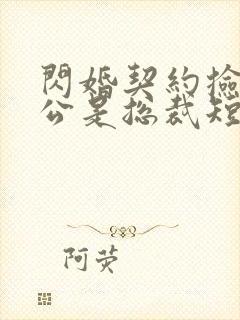 閃婚契約撿
公是总裁短
阿荧